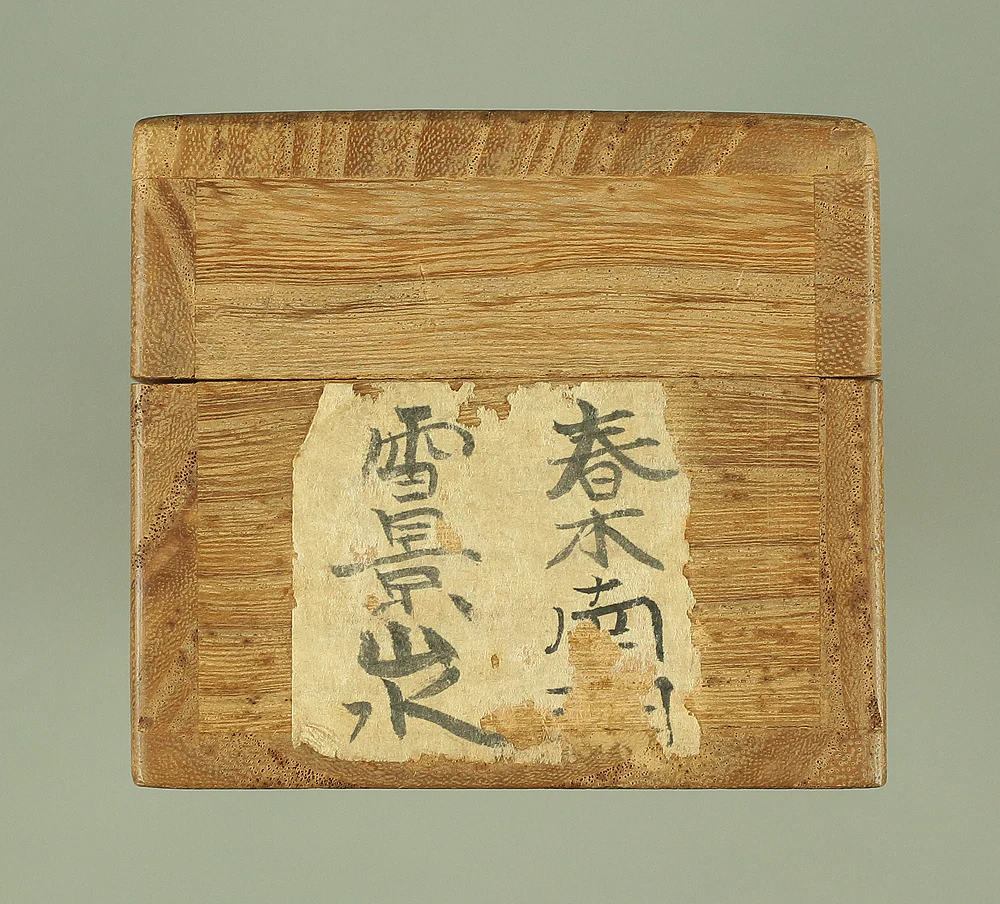 春木南
雪景山水